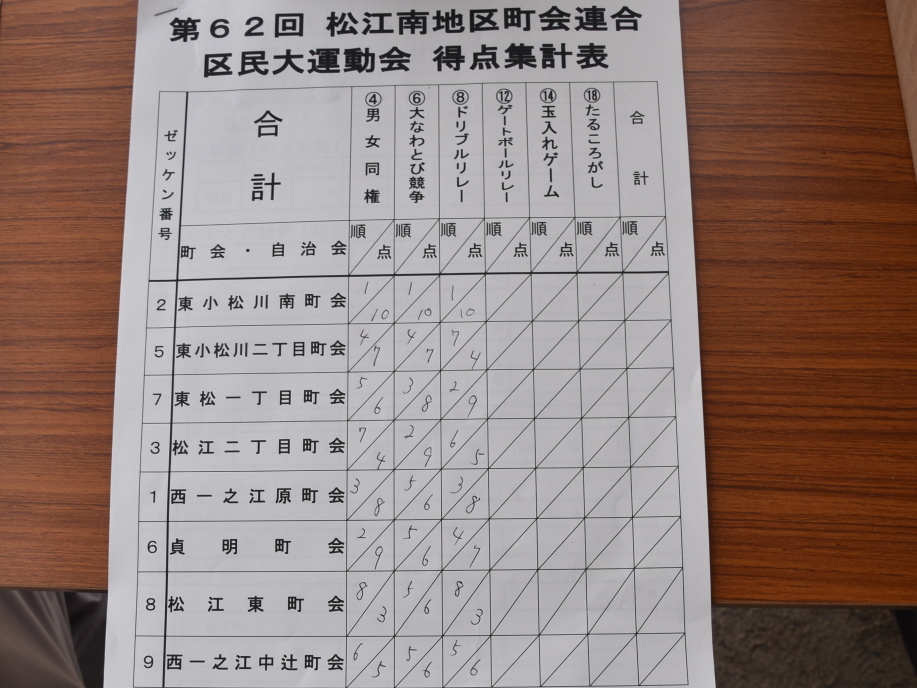 第62回 松江南地区町会連合
区民大運動会 得点集計表
ゼッケン番号 合計 ④男女同権 ⑥大なわとび競争 ⑧ドリブルリレー ⑫ゲートボールリレー ⑭玉入れゲーム ⑱たるころがし 合計
町会・自治会 順/点 順/点 順/点 順/点 順/点 順/点 順/点
2 東小松川南町会 1/10 1/10 1/10
5 東小松川二丁目町会 4/7 4/7 7/4
7 東松一丁目町会 5/6 3/8 2/9
3 松江二丁目町会 7/4 2/9 6/5
1 西一之江原町会 3/8 5/6 3/8
6 貞明町会 2/9 5/6 4/7
8 松江東町会 8/3 5/6 8/3
9 西一之江中辻町会 6/5 5/6 5/6